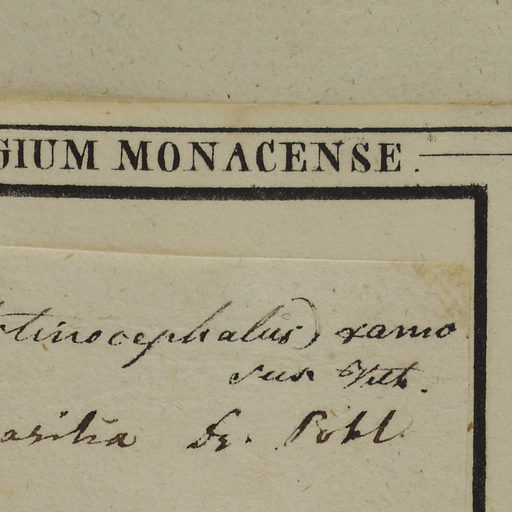 GIUM MONACENSE.
tinocephalus) ramo
sus Vitt.
asilia Dr. Pohl